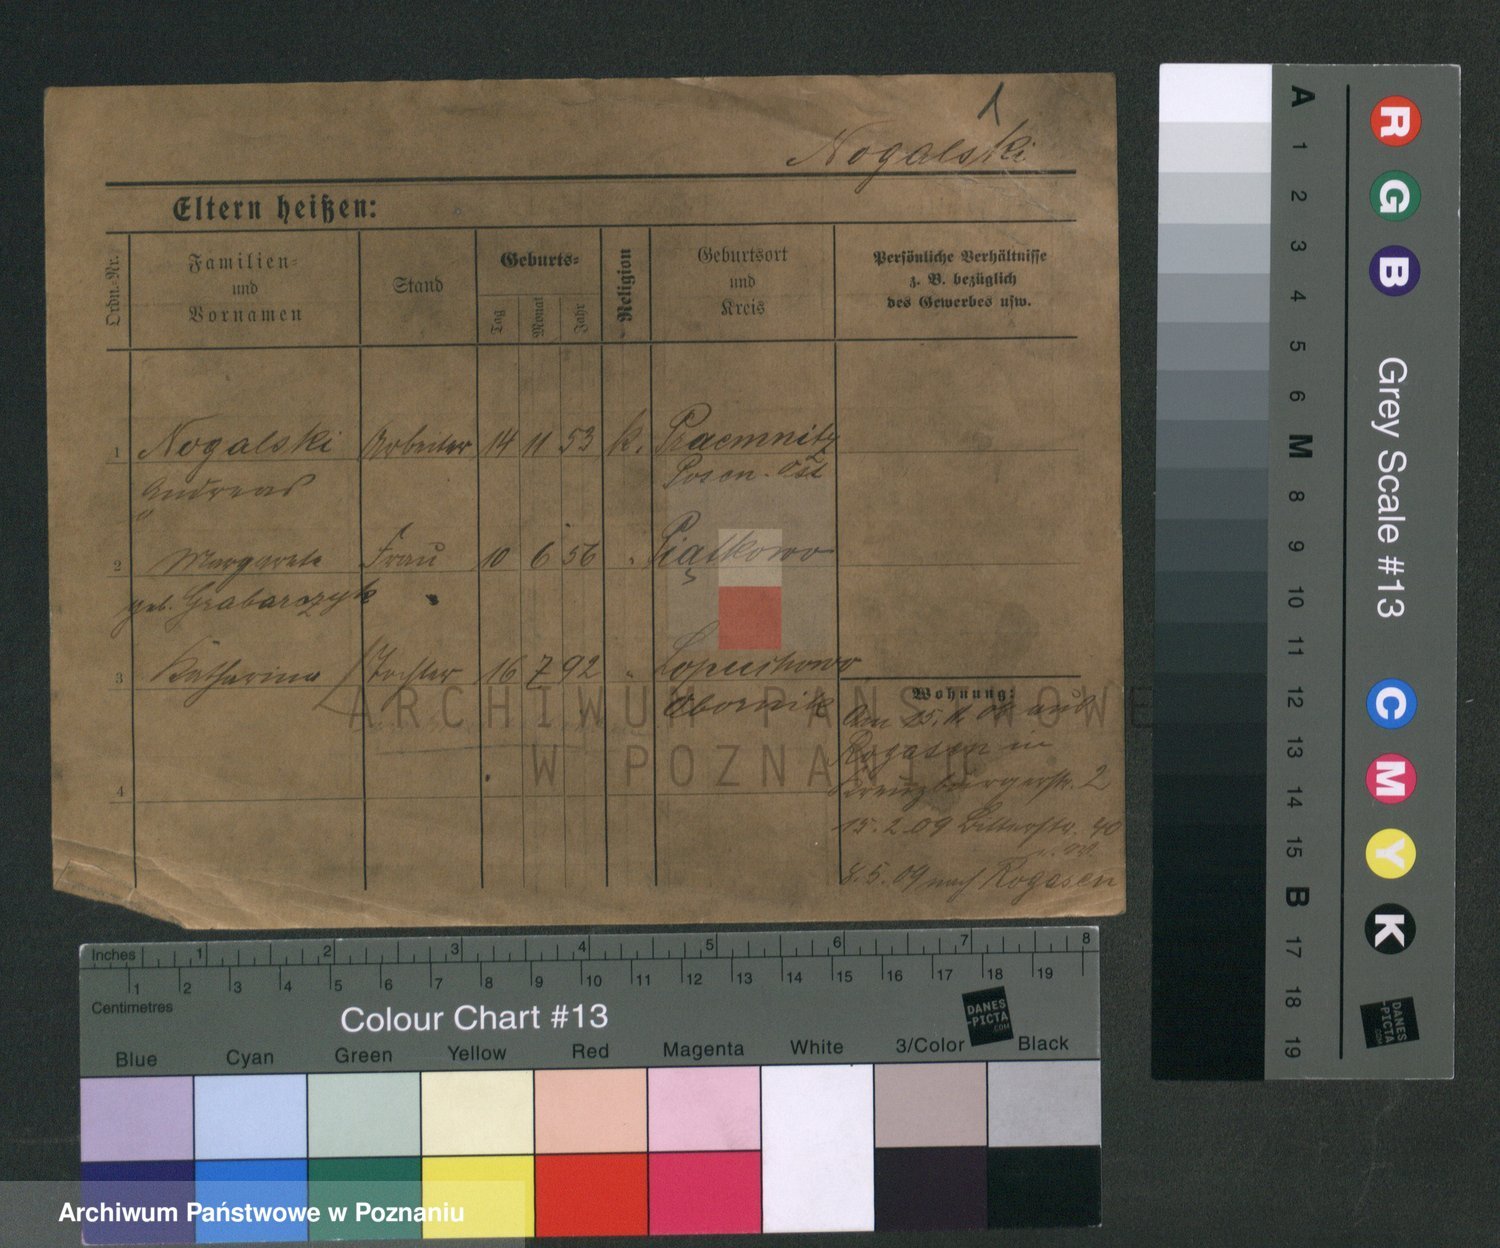 1
Nogalski
Eltern heißen:
Ordn.-Nr.
Familien-
und
Vornamen
Stand
Geburts-
Tag
Monat
Jahr
Religion
Geburtsort
und
Kreis
Persönliche Verhältnisse
z. B. bezüglich
des Gewerbes usw.
1 Nogalski Arbeiter 14 11 53 k.
Andreas Posen-Ost
2 Margarete Frau 10 6 56 Piątkowo
geb. Grabarczyk
3 Katharina Tochter 16 7 92 " Lopuchowo
Obornik
4
Wohnung:
Am 25. 08 aus
Rogasen in
Kreuzburgerstr. 2
15.2.09 Bitterstr. 40
8.5.09 nach Rogasen
ARCHIWUM PAŃSTWOWE
W POZNANIU
Inches 1 2 3 4 5 6 7 8
1 2 3 4 5 6 7 8 9 10 11 12 13 14 15 16 17 18 19
Centimetres
Colour Chart #13
DANES
-PICTA
.COM
Blue Cyan Green Yellow Red Magenta White 3/Color Black
A 1 2 3 4 5 6 M 8 9 10 11 12 13 14 15 B 17 18 19
R G B
Grey Scale #13
C M Y K
DANES
-PICTA
.COM
Archiwum Państwowe w Poznaniu